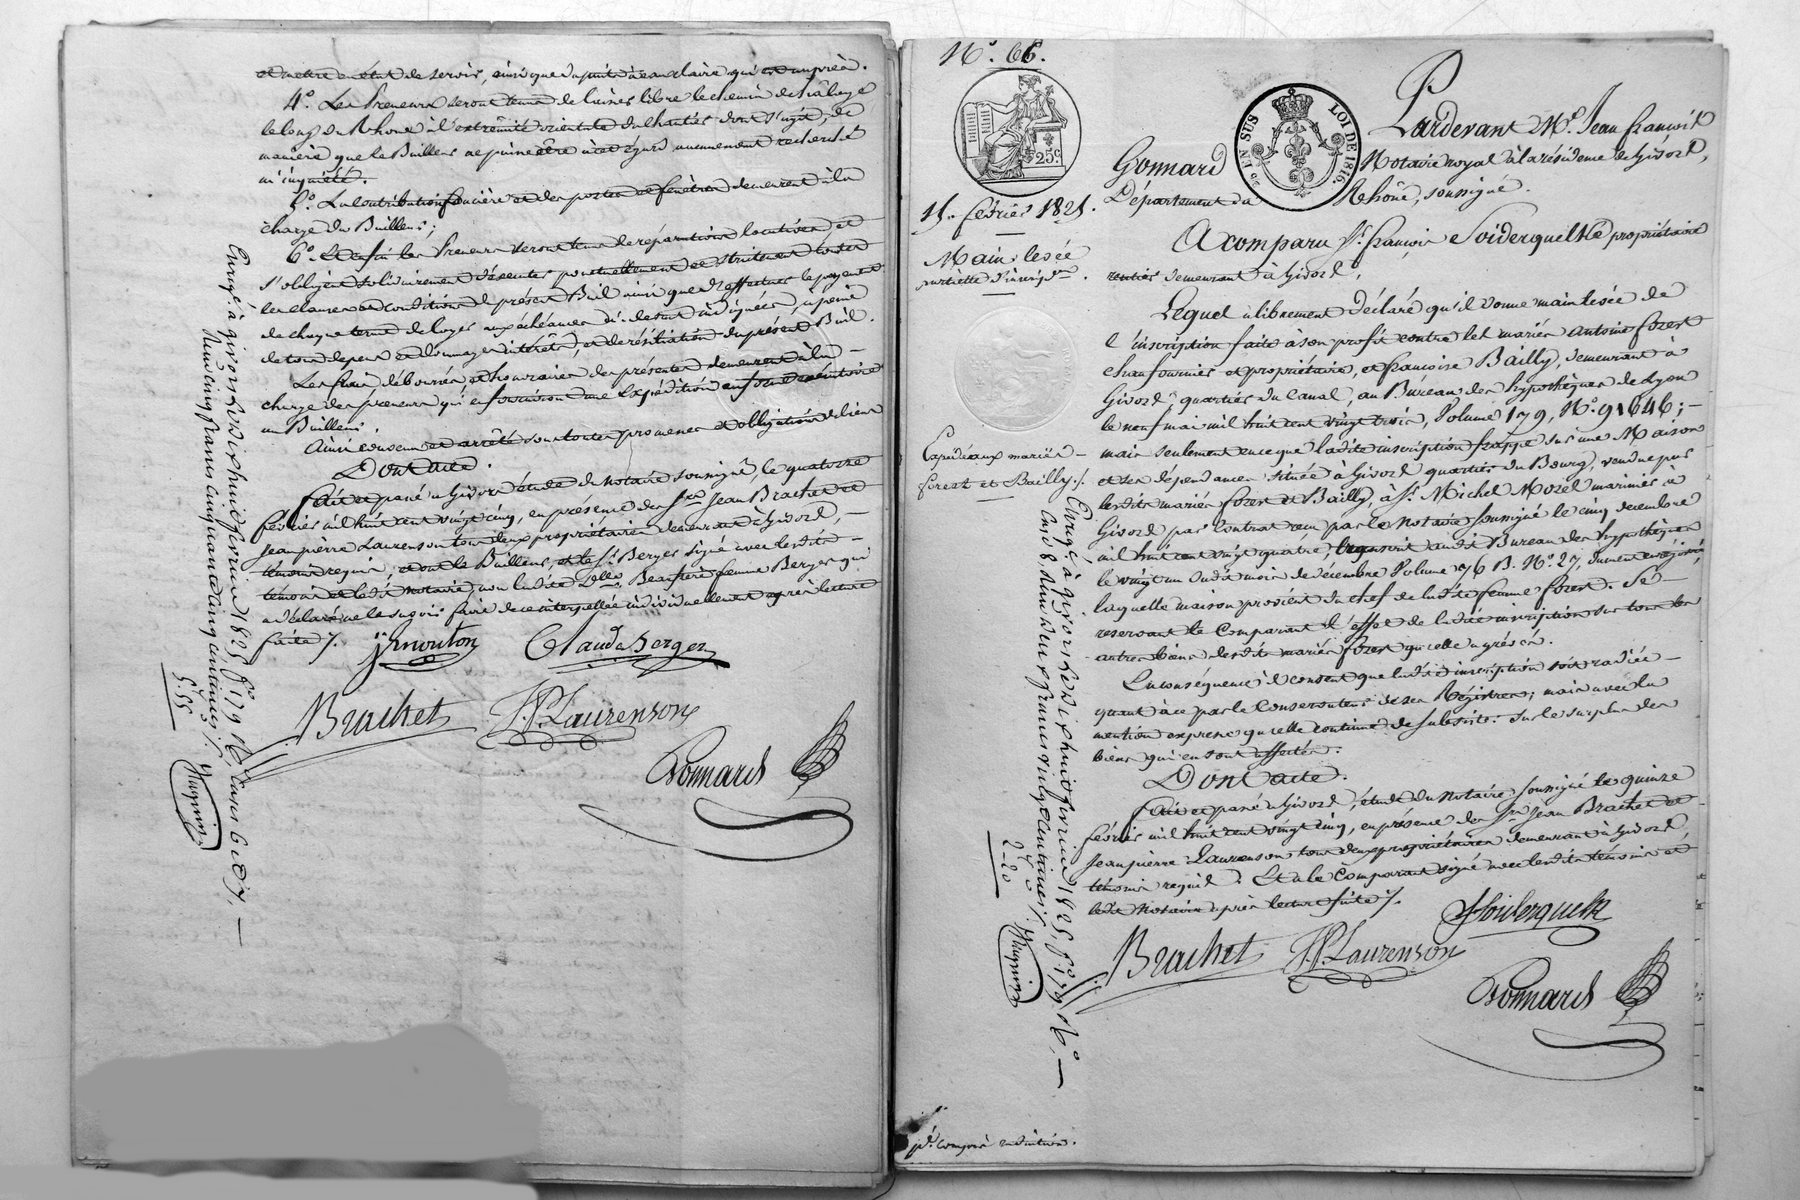 et mettre en état de servir, ainsi que la partie à eau claire qui est auprès.
4° Les Preneurs seront tenus de laisser libre le chemin de halage
le long du Rhône à l'extrêmité orientale du hautés dont s'agit, de
manière que le Bailleur ne puisse être à cet égard aucunement recherché
ni inquiété.
5° La contribution foncière et des portes et fenêtres demeurent à la
charge du Bailleur;
6° Et enfin les Preneurs seront tenus de réparations locatives, et
s'obligent solidairement d'exécuter ponctuellement et strictement toutes
les clauses et conditions du présent Bail ainsi que d'effectuer le payement
de chaque terme de loyer aux échéances ci-dessus indiquées, à peine
de tous dépens et dommages intérêts, et de résiliation du présent Bail.
Les frais déboursés et honoraires des présentes demeurent à la
charge des preneurs qui en fourniront une Expédition en forme exécutoire
au Bailleur.
Ainsi convenu et arrêté sous toutes promesses et obligation de biens
Dont acte.
Fait et passé à Givors étude du Notaire soussigné, le quatorze
février mil huit cent vingt cinq, en présence des Srs Jean Brachet et
Jean pierre Laurenson tous deux propriétaires demeurant à Givors,
témoins requis; et ont le Bailleur, et le Sr. Berger signé avec lesdits
témoins et ledit Notaire, non ladite Delle Beaupère femme Berger qui
a déclaré ne le savoir faire de ce interpellée individuellement après lecture
faite ./.
JMouton Claude Berger
Brachet JP. Laurenson
Gonnard
Enrgé. à givors le dixhuit février 1825, f° 179 R° cases 6 et 7,
Reçu cinq francs cinquante cinq centimes ./.
5.55
Huguin
N° 66.
25 c.
EN SUS LOI DE 1816.
15. février 1825.
Main levée
partielle d'inscript.on
Capédéaux mariés
forest et Bailly ./.
Pardevant Me. Jean françois
Gonnard Notaire royal à la résidence de Givors,
Département du Rhône, soussigné.
A comparu Sr. françois Soiderquelk propriétaire
rentier demeurant à Givors,
Lequel a librement déclaré qu'il donne mainlevée de
l'inscription faite à son profit contre les mariés antoine forest
chaufournier et propriétaire, et françoise Bailly, demeurant à
Givors quartier du Canal, au Bureau des hypothèques de Lyon
le neuf mai mil huit cent vingt trois, Volume 179, N° 91646;
mais seulement en ce que ladite inscription frappe sur une Maison
et ses dépendances située à Givors quartier du Bourg, vendue par
lesdits mariés forest et Bailly, à Sr. Michel Mozel marinier à
Givors par contrat reçu par le Notaire soussigné le cinq décembre
mil huit cent vingt quatre, transcrit audit Bureau des hypothèques
le vingt un dudit mois de décembre Volume 76 B. N° 27, dument enrégistré
laquelle maison provient du chef de ladite femme forest. Se
reservant le Comparant l'effet de ladite inscription sur tous les
autres biens desdits mariés forest qu'elle a grévés.
En conséquence il consent que ladite inscription soit radiée
quant à ce par le Conservateur de ses Registres; mais avec la
mention expresse qu'elle continue de subsister sur le surplus des
biens qui en sont affectés.
Dont acte.
Fait et passé à Givors, étude du Notaire soussigné le quinze
février mil huit cent vingt cinq, en présence des Srs Jean Brachet et
Jean pierre Laurenson tous deux propriétaires demeurant à Givors,
témoins requis. Et a le Comparant signé avec lesdits témoins et
ledit Notaire après lecture faite ./.
fSoiderquelk
Brachet JP. Laurenson
Gonnard
Enrgé. à givors le dixhuit février 1825, f° 179 R°
Case 8, Reçu deux francs vingt centimes ./.
2-20
Huguin